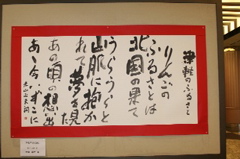 津軽のふるさと
りんごの
ふるさとは
北国の果て
うらうらと
山肌に抱か
れて夢を見た
あの頃の想い出
あゝ今いずこに